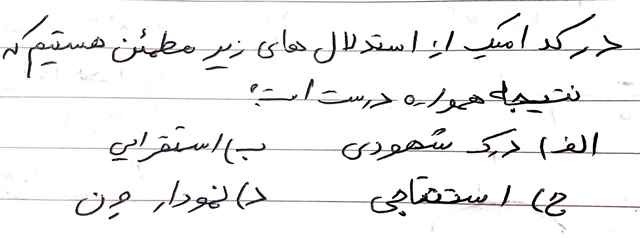 در کدامیک از استدلال های زیر مطمئن هستیم که
نتیجه همواره درست است؟
الف) درک شهودی ب) استقرایی
ج) استنتاجی د) نمودار ون